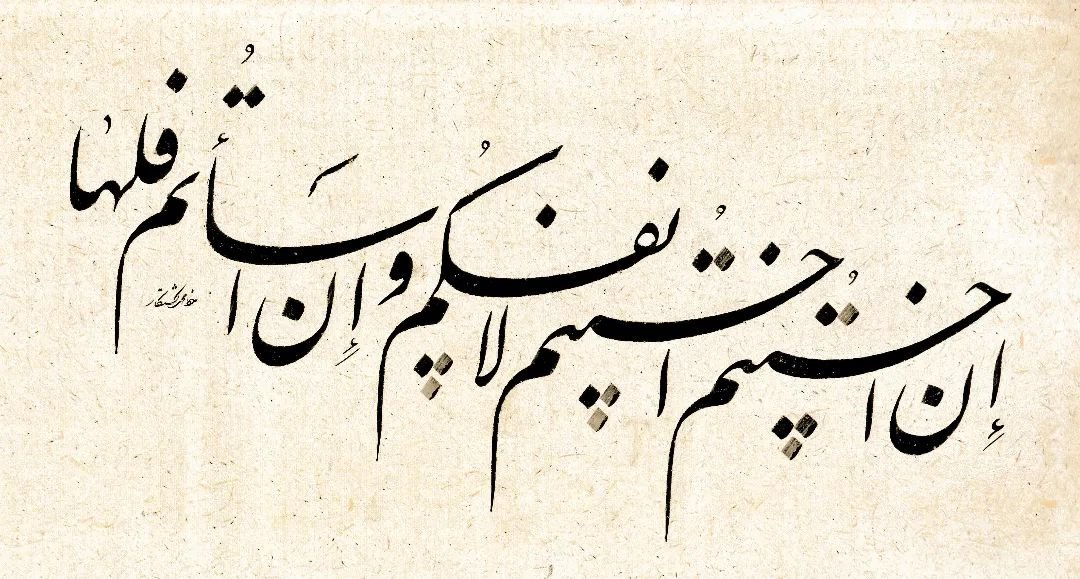 إِن احسنتُم احسنتُم لانفسکُم و إِن اسَأتُم فلها